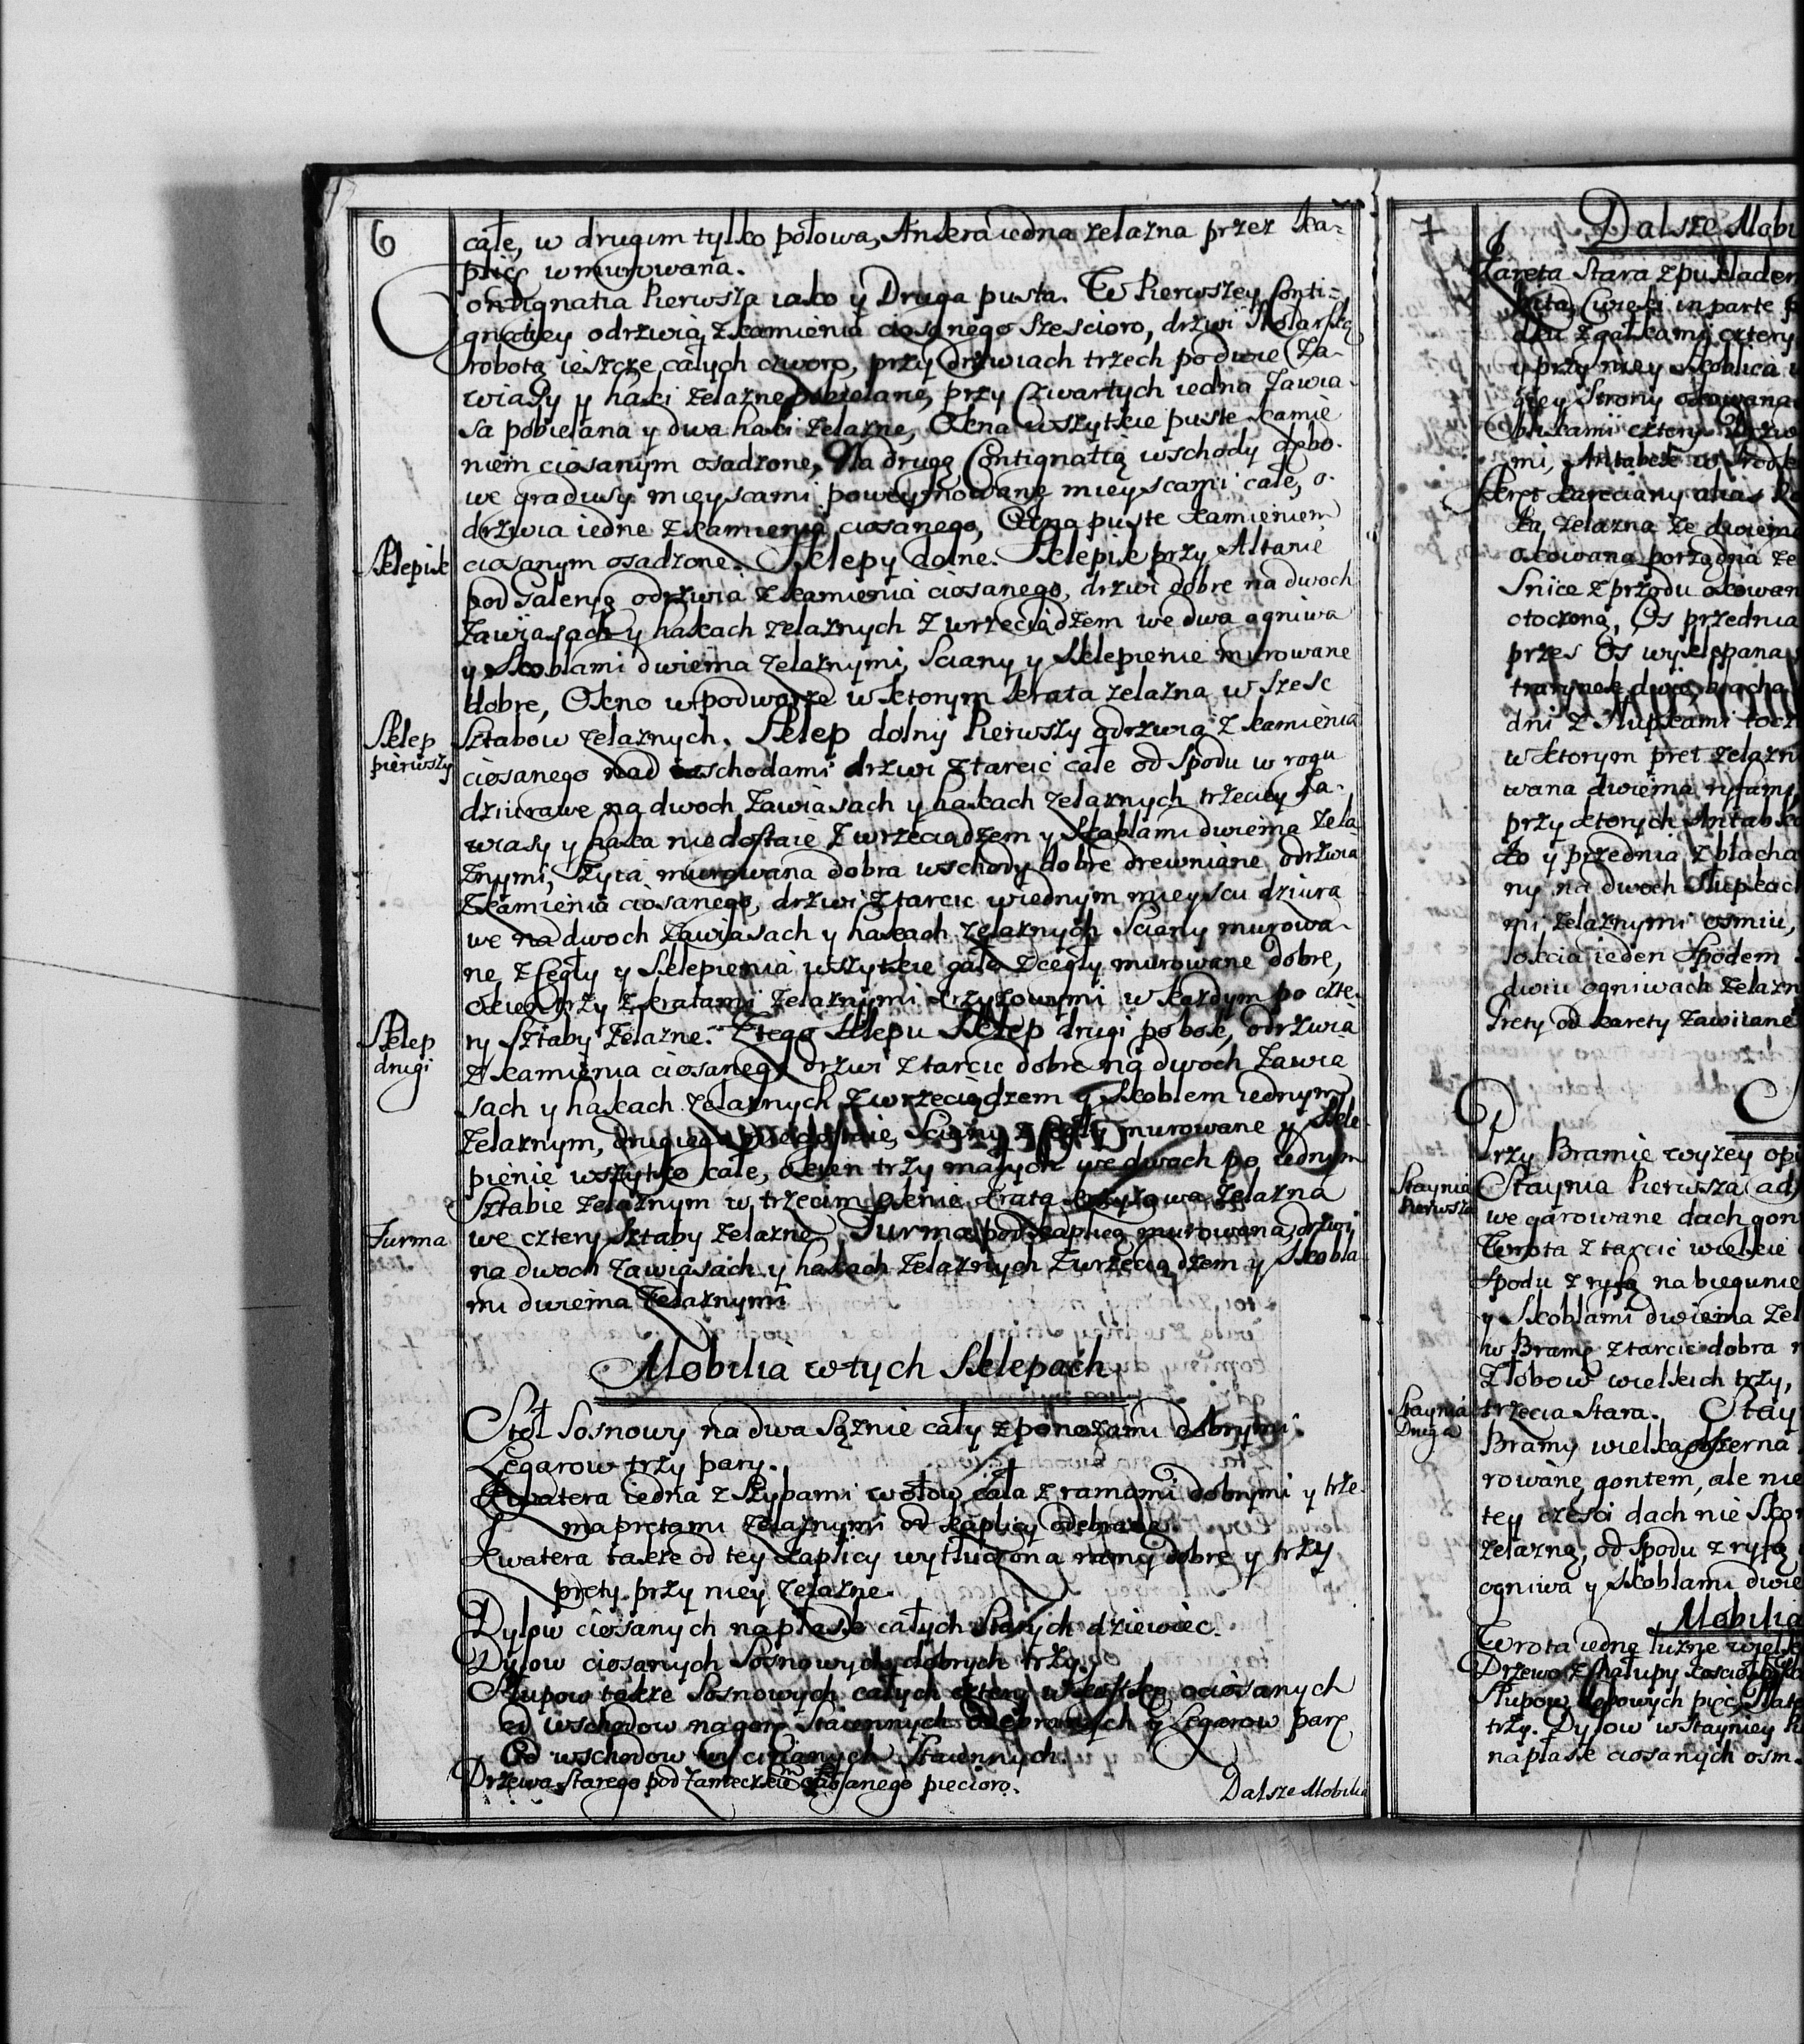 6
całe, w drugim tylko połowa, Ankera iedna zelazna przez ka-
plicę wmurowana.
Contignatia Pierwsza iako y Druga pusta. W Pierwszey Conti-
gnatiey odrzwia z kamienia ciosanego sześcioro, drzwi Stolarską
robotą ieszcze całych czworo, przy drzwiach trzech po dwie Za-
wiasy y haki żelazne pobielane, przy Czwartych iedna zawia-
sa pobielana y dwa haki żelazne, Okna wszytkie puste kamie
niem ciosanym osadzone, Na drugą Contignatią wschody dębo-
we gradusy mieyscami powyimowane mieyscami całe, o-
drzwia iedne z kamienia ciosanego, Okna puste kamieniem
Sklepik
ciosanym osadzone. Sklepy dolne. Sklepik przy Altanie
pod Galeryą odrzwia z kamienia ciosanego, drzwi dobre na dwoch
Zawiasach y hakach żelaznych z wrzeciądzem we dwa ogniwa
y Skoblami dwiema żelaznymi, Sciany y Sklepienie murowane
dobre, Okno w podworze w ktorym krata zelazna w szesc
Sklep
pierwszy
Sztabow żelaznych. Sklep dolny Pierwszy odrzwia z kamienia
ciosanego nad wschodami drzwi z tarcic całe od spodu w rogu
dziurawe na dwoch zawiasach y hakach zelaznych trzeciey za-
wiasy y haka niedostaie z wrzeciądzem y Skoblami dwiema zela
znymi, Szyia murowana dobra wschody dobre drewniane odrzwia
z kamienia ciosanego, drzwi z tarcic w iednym mieyscu dziura
we na dwoch zawiasach y hakach żelaznych Sciany murowa-
ne z Cegły y Sklepienia wszytkie całe z cegły murowane dobre,
okien trzy z kratami żelaznymi krzyzowymi w kazdym po czte-
Sklep
drugi
ry sztaby żelazne. Z tego Sklepu Sklep drugi pobok, odrzwia
z kamienia ciosanego drzwi z tarcic dobre na dwoch zawia
sach y hakach żelaznych z wrzeciądzem y Skoblem iednym
żelaznym, drugiego niedostaie, Sciany z Cegły murowane y Skle-
pienie wszytko całe, okien trzy małych we dwoch po iednym
Sztabie żelaznym w trzecim oknie krata krzyzowa żelazna
Turma
we cztery Sztaby żelazne. Turma pod kaplicą murowana drzwi
na dwoch zawiasach y hakach żelaznych z wrzeciądzem y Skobla-
mi dwiema żelaznymi
Mobilia w tych Sklepach
Stoł Sosnowy na dwa sążnie cały z ponozami dobrymi.
Legarow trzy pary.
Kwatera iedna z Szybami w ołow cała z ramami dobrymi y trze-
ma prętami żelaznymi od kaplicy odebrana
Kwatera także od tey kaplicy wytłuczona ramy dobre y trzy
pręty przy niey żelazne.
Dylow ciosanych na płask całych Starych dziewięc.
Dylow ciosanych Sosnowych dobrych trzy.
Słupow także Sosnowych całych cztery w ociosanych
od wschodow na gorę odebranych y Legarow parę
Od wschodow
Drzewa starego pod Zameczkiem ciosanego piecioro.
Dalsze Mobilia
7
Dalsze Mobi
Kareta Stara z pukladem
bita, Cwieki in parte
dku z gałkami cztery
y przy niey skoblica
giey Strony okowana
Obliskami cztery
mi, Antabek w
Skręt kareciany alias
ka żelazna ze dwiema
okowana porządnia że
Snice z przodu okowan
otoczona, Os przednia
przez Os wyklepana
dwie blacha
dni z Słupkami tocz
w ktorym pręt żelazn
wana dwiema ryfami,
przy ktorych Antabk
ko y przednia z blacha
ny na dwoch Słupkach
mi żelaznymi osmiu,
łokcia ieden Spodem
dwiu ogniwach żelazn
Pręty od karety zawiiane
Przy Bramie wyzey opi
Staynia
Pierwsza
Staynia Pierwsza ad
we garowane dach gon
Wrota z tarcic wielkie
Spodu z ryfą na biegunie
y Skoblami dwiema żel
w Bramę z tarcic dobra
Złobow wielkich trzy,
Staynia
Druga
trzecia Stara. Stay
Bramy wielka obszerna
rowane gontem, ale nie
tey częsci dach nie skon
żelazną, od spodu z ryfą
ogniwa y Skoblami dwie
Mobilia
Wrota iedne luzne wielk
Drzewo z chałupy
Słupow dębowych pięc,
trzy. Dylow w Stayniey
na płask ciosanych osm.